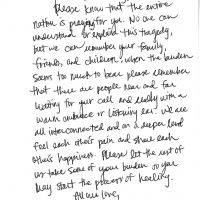 Please know that the entire
nation is praying for you. No one can
understand or explain this tragedy,
but we can remember your family,
friends, and children. When the burden
seems too much to bear please remember
that there are people near and far
waiting for your call and ready with a
warm embrace or listening ear. We are
all interconnected and on a deeper level
feel each others pain and share each
others happiness. Please let the rest of
us take some of your burden so you
may start the process of healing.
All our love,